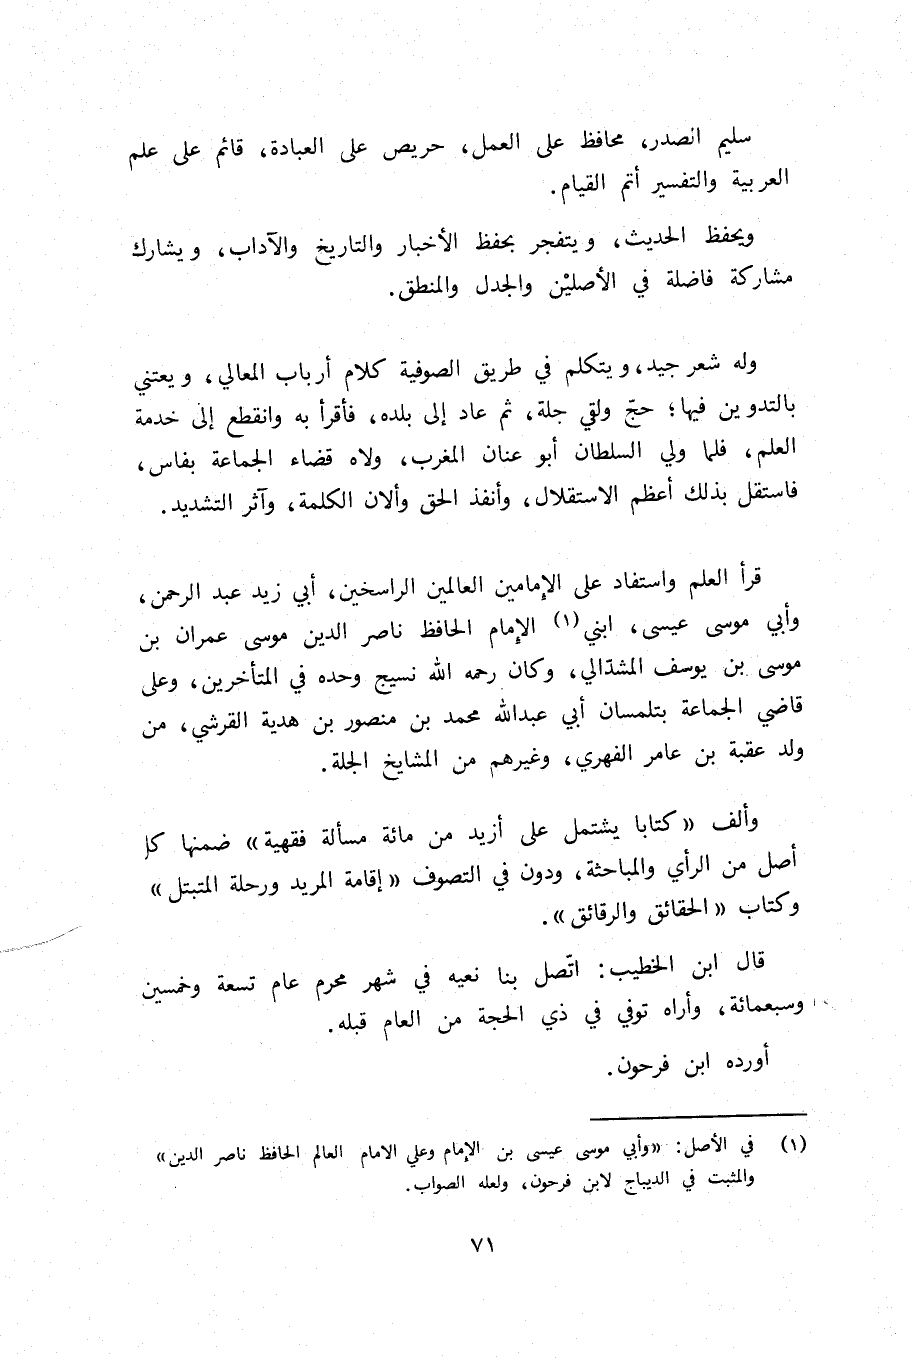 سليم الصدر، محافظ على العمل، حريص على العبادة، قائم على علم
العربية والتفسير أتم القيام.
ويحفظ الحديث، ويتفجر بحفظ الأخبار والتاريخ والآداب، ويشارك
مشاركة فاضلة في الأصليْن والجدل والمنطق.
وله شعر جيد، ويتكلم في طريق الصوفية كلام أرباب المعالي، ويعتني
بالتدوين فيها؛ حجّ ولقي جلة، ثم عاد إلى بلده، فأقرأ به وانقطع إلى خدمة
العلم، فلما ولي السلطان أبو عنان المغرب، ولاه قضاء الجماعة بفاس،
فاستقل بذلك أعظم الاستقلال، وأنفذ الحق وألان الكلمة، وآثر التشديد.
قرأ العلم واستفاد على الإمامين العالمين الراسخين، أبي زيد عبد الرحمن،
وأبي موسى عيسى، ابني(١) الإمام الحافظ ناصر الدين موسى عمران بن
موسى بن يوسف المشدّالي، وكان رحمه الله نسيج وحده في المتأخرين، وعلى
قاضي الجماعة بتلمسان أبي عبدالله محمد بن منصور بن هدية القرشي، من
ولد عقبة بن عامر الفهري، وغيرهم من المشايخ الجلة.
وألف «كتابا يشتمل على أزيد من مائة مسألة فقهية» ضمنها كل
أصل من الرأي والمباحثة، ودون في التصوف «إقامة المريد ورحلة المتبتل»
وكتاب «الحقائق والرقائق».
قال ابن الخطيب: اتّصل بنا نعيه في شهر محرم عام تسعة وخمسين
وسبعمائة، وأراه توفي في ذي الحجة من العام قبله.
أورده ابن فرحون.
(١) في الأصل: «وأبي موسى عيسى بن الإمام وعلي الامام العالم الحافظ ناصر الدين»
والمثبت في الديباج لابن فرحون، ولعله الصواب.
٧١